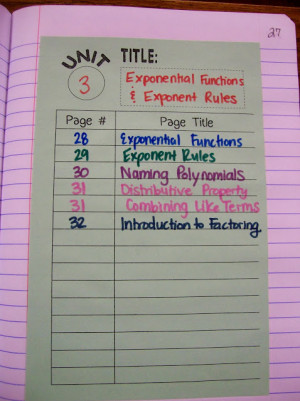 27
UNIT TITLE:
3 Exponential Functions
& Exponent Rules
Page # Page Title
28 Exponential Functions
29 Exponent Rules
30 Naming Polynomials
31 Distributive Property
31 Combining Like Terms
32 Introduction to Factoring